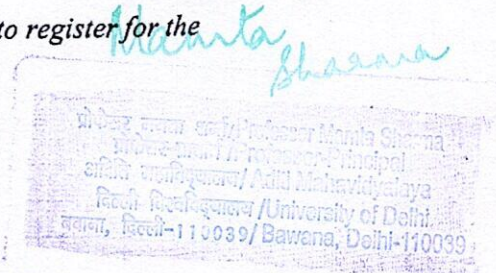 to register for the
Mamta
Sharma
प्रोफेसर ममता शर्मा/Professor Mamta Sharma
प्राचार्या/Professor-Principal
अदिति महाविद्यालय/ Aditi Mahavidyalaya
दिल्ली विश्वविद्यालय /University of Delhi
बवाना, दिल्ली-110039/ Bawana, Delhi-110039